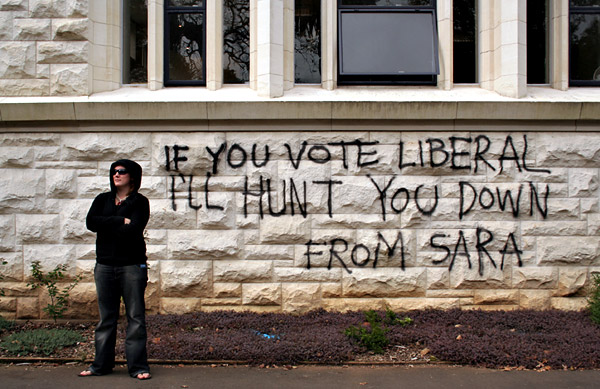 IF YOU VOTE LIBERAL
I'LL HUNT YOU DOWN
FROM SARA